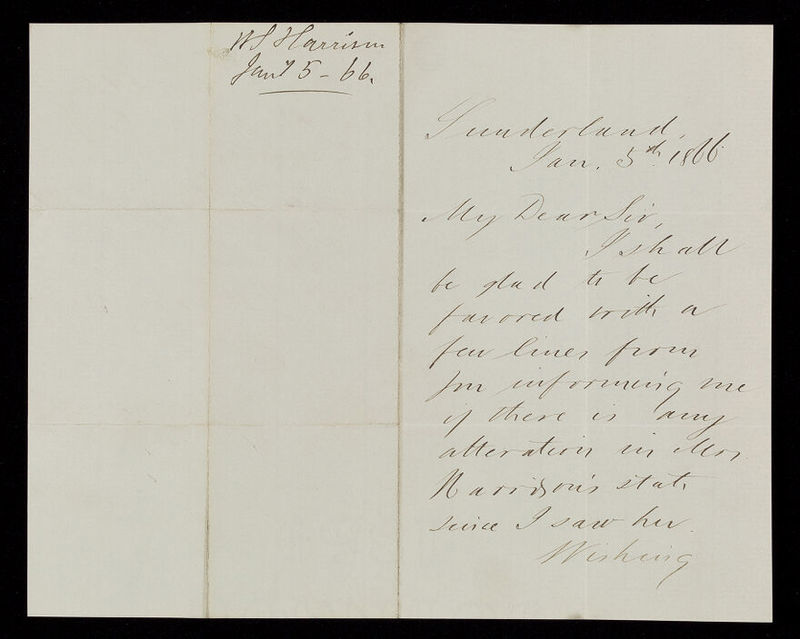 W S Harrison
Jany 5 - 66.
Sunderland,
Jan. 5th 1866
My Dear Sir,
I shall
be glad to be
favored with a
few lines from
you informing me
if there is any
alteration in Mrs
Harrison's state
since I saw her.
Wishing